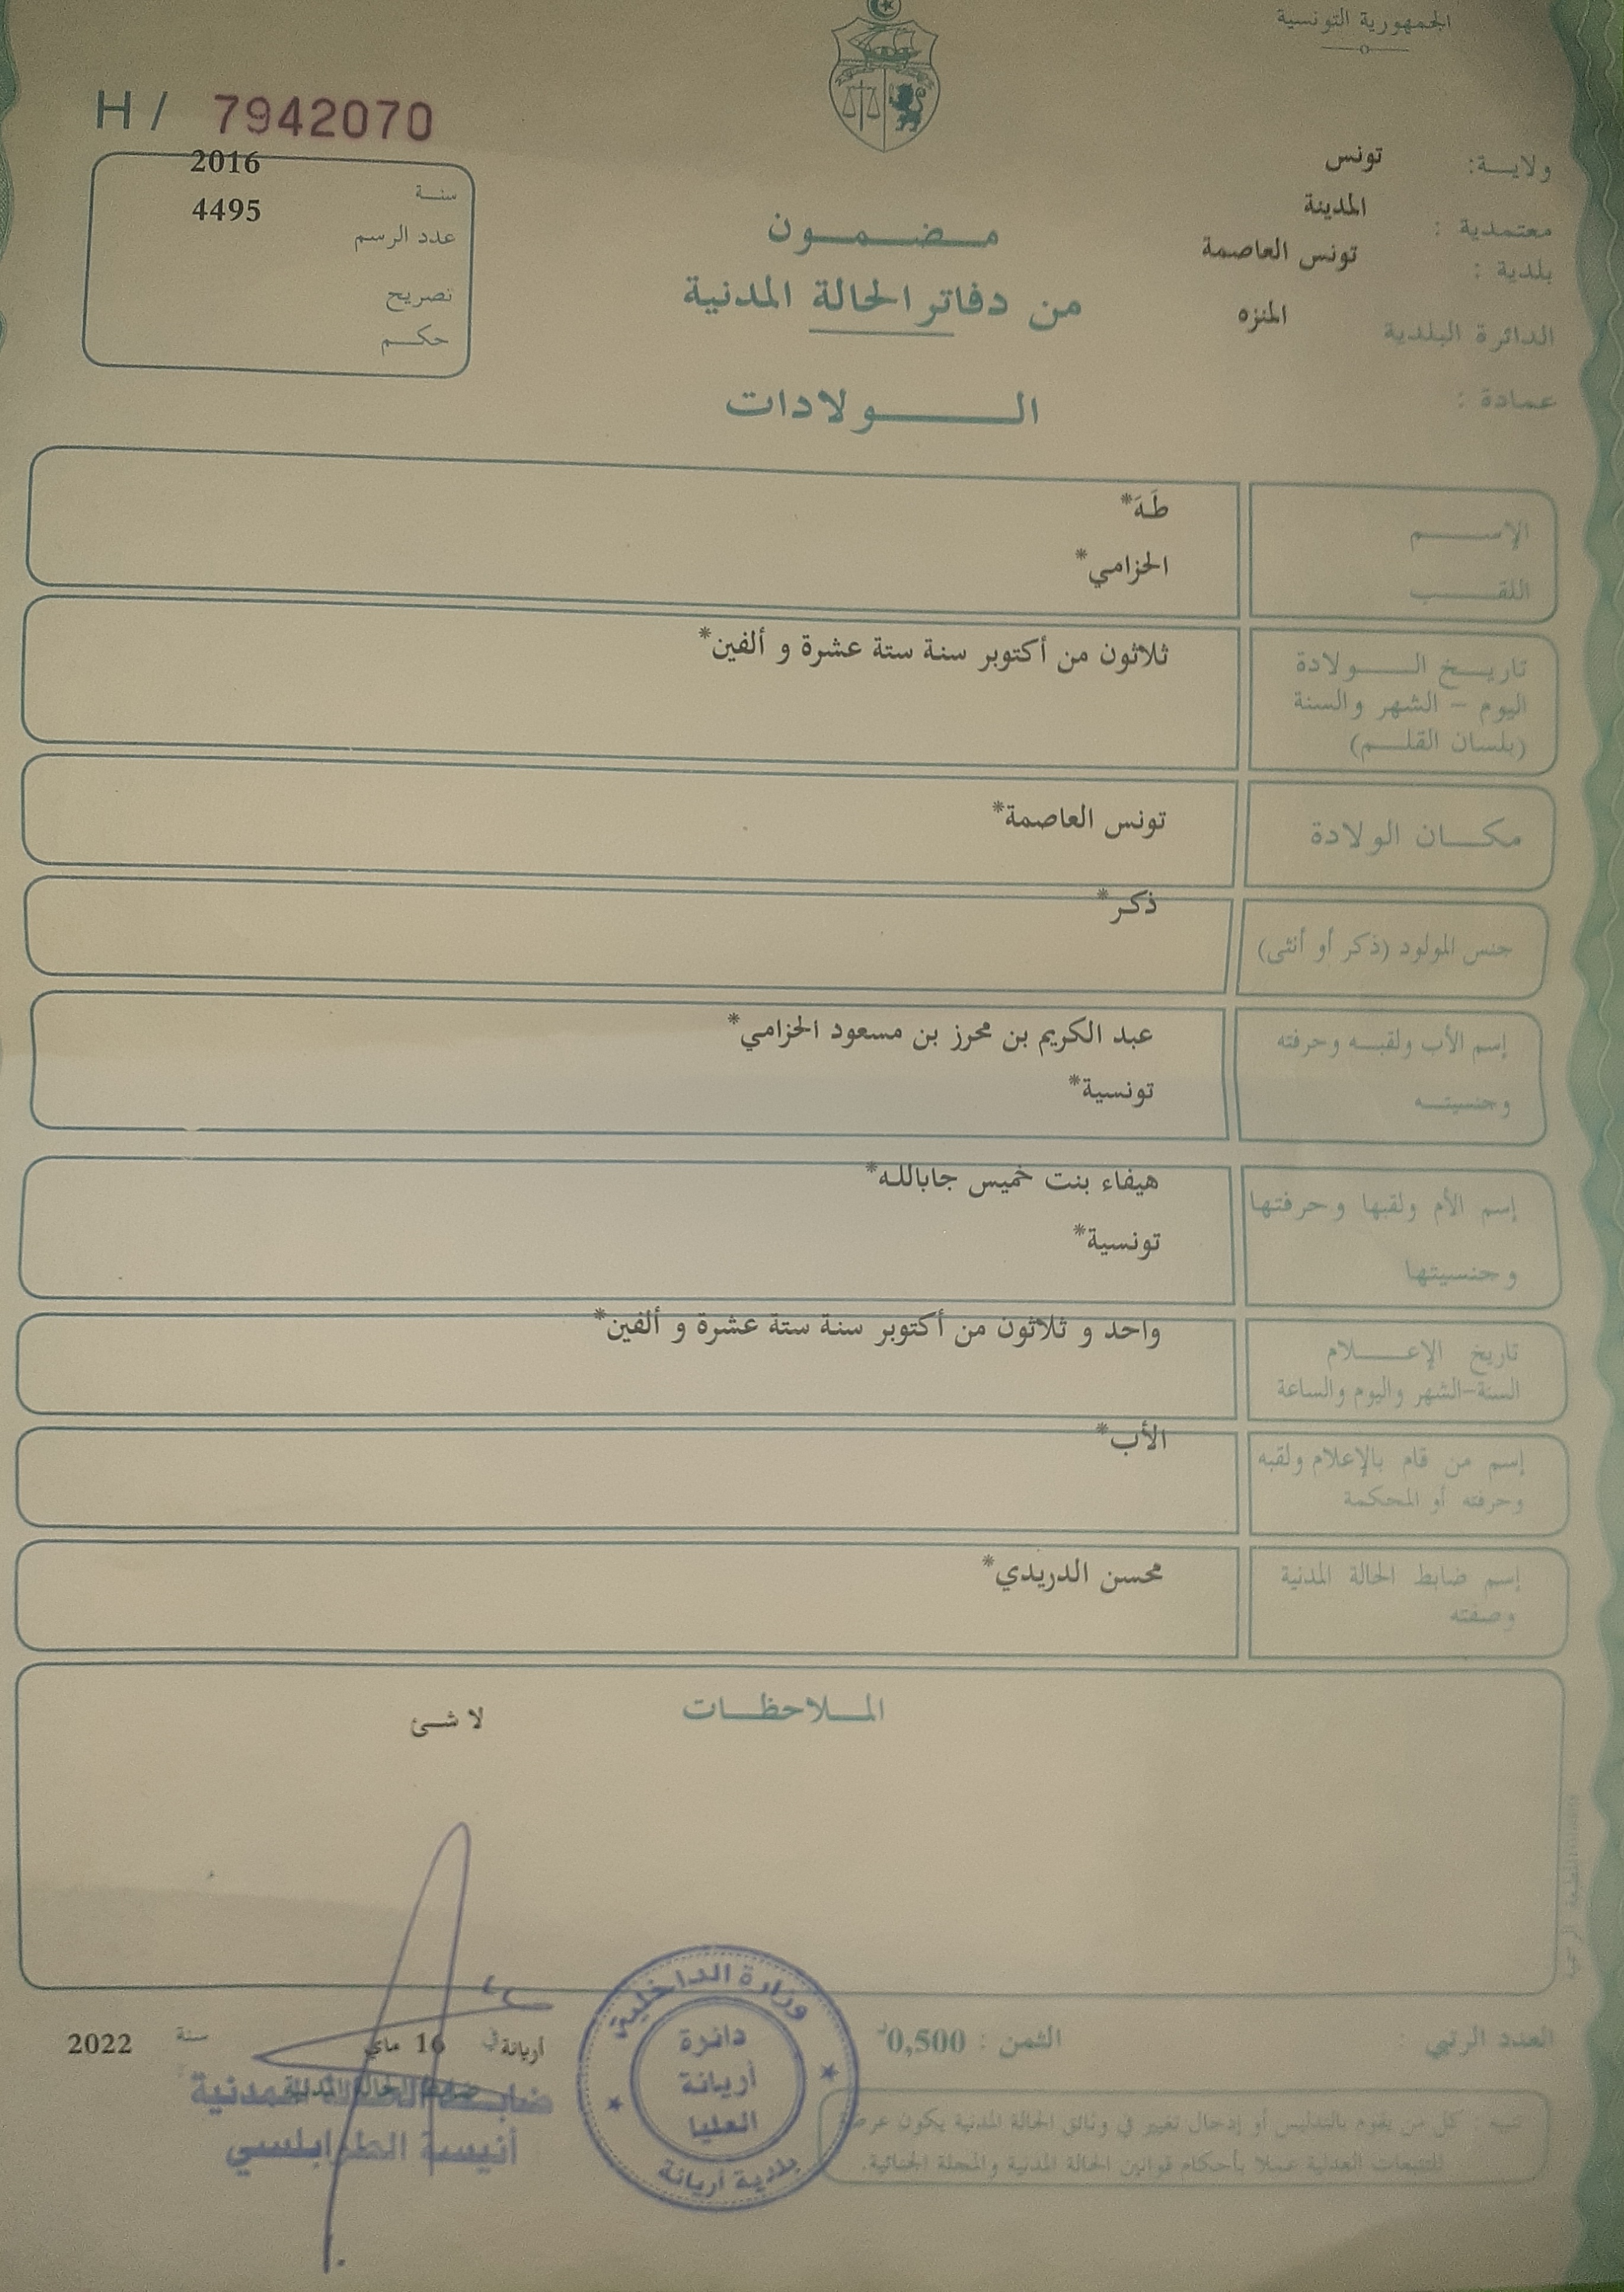 الجمهورية التونسية
H / 7942070
ولايــة: تونس
معتمدية : المدينة
بلدية : تونس العاصمة
الدائرة البلدية المنزه
عمادة :
سنـة 2016
عدد الرسم 4495
تصريح
حكـم
مـضـمـون
من دفاتر الحالة المدنية
الـولادات
الإسـم طَهَ*
اللقـب الحزامي*
تاريـخ الـولادة ثلاثون من أكتوبر سنة ستة عشرة و ألفين*
اليوم – الشهر والسنة
(بلسان القلـم)
مكـان الولادة تونس العاصمة*
جنس المولود (ذكر أو أنثى) ذكر*
إسم الأب ولقبـه وحرفته عبد الكريم بن محرز بن مسعود الحزامي*
وجنسيتـه تونسية*
إسم الأم ولقبها وحرفتها هيفاء بنت خميس جاباللـه*
وجنسيتها تونسية*
تاريخ الإعـلام واحد و ثلاثون من أكتوبر سنة ستة عشرة و ألفين*
السنة–الشهر واليوم والساعة
إسم من قام بالإعلام ولقبه الأب*
وحرفته أو المحكمة
إسم ضابط الحالة المدنية محسن الدريدي*
وصفته
المـلاحظـات
لا شئ
العدد الرتبي :
الثمن : 0,500د
أريانة في 16 ماي سنة 2022
ضابط الحالة المدنية
ضابط الحالة المدنية
أنيسة الطرابلسي
وزارة الداخلية
دائرة
أريانة
العليا
بلدية أريانة
تنبيه : كل من يقوم بالتدليس أو إدخال تغيير في وثائق الحالة المدنية يكون عرضة
للتتبعات العدلية عملا بأحكام قوانين الحالة المدنية والمجلة الجنائية.